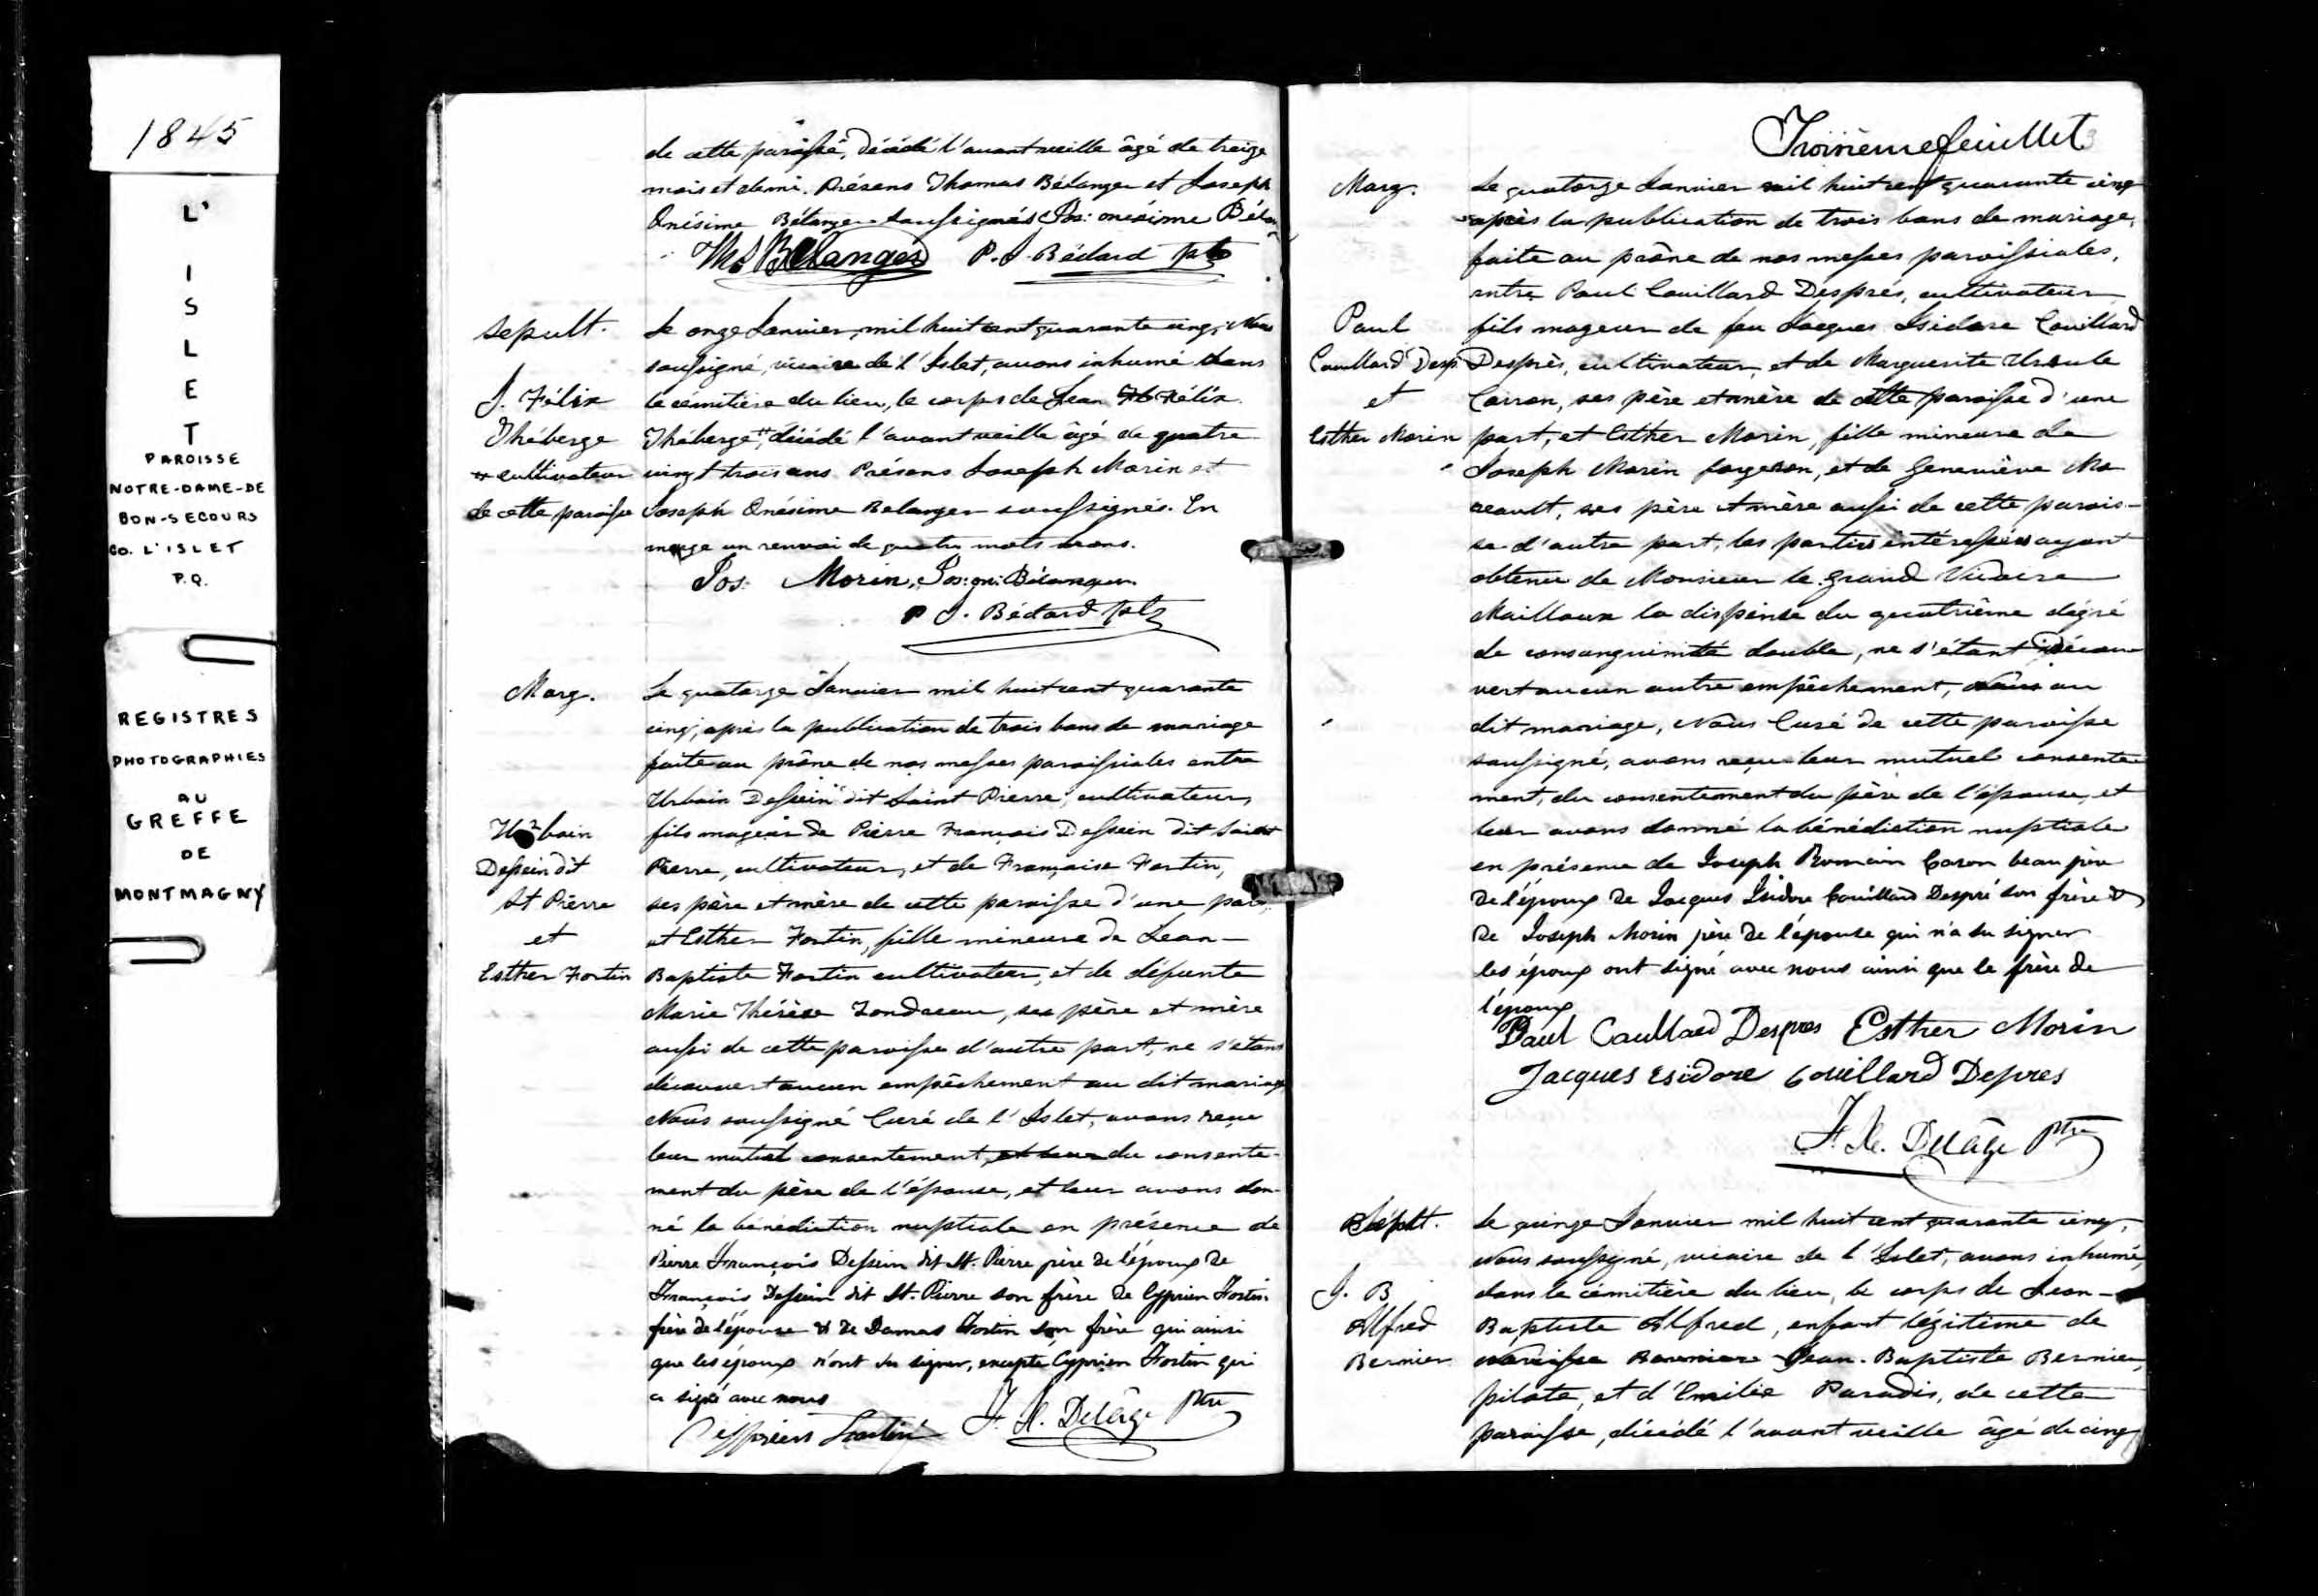 1845
L'
I
S
L
E
T
PAROISSE
NOTRE-DAME-DE
BON-SECOURS
CO. L'ISLET
P.Q.
REGISTRES
PHOTOGRAPHIES
AU
GREFFE
DE
MONTMAGNY
de cette paroisse, décédé l'avant veille âgé de treize
mois et demi. Présens Thomas Bélanger et Joseph
Onésime Bélanger soussignés Jos: onésime Bélan
Ths Bélanger P. J. Bédard ptr
Sepult.
J. Félix
Théberge
# cultivateur
de cette paroisse
Le onze Janvier, mil huit cent quarante cinq, Nous
soussigné, vicaire de l'Islet, avons inhumé dans
le cémitière du lieu, le corps de Jean Félix
Théberge #, décédé l'avant veille âgé de quatre
vingt trois ans Présens Joseph Morin et
Joseph Onésime Belanger soussignés. En
marge un renvoi de quatre mots bons.
Jos: Morin, Jos: on: Bélanger
P J. Bédard ptr
Marg.
Urbain
Dessein dit
St Pierre
et
Esther Fortin
Le quatorze Janvier mil huit cent quarante
cinq, après la publication de trois bans de mariage
faite au prône de nos messes paroissiales entre
Urbain Dessein dit Saint Pierre, cultivateur,
fils mageur de Pierre François Dessein dit Saint
Pierre, cultivateur, et de Française Fortin,
ses père et mère de cette paroisse d'une part
et Esther Fortin, fille mineure de Jean-
Baptiste Fortin cultivateur, et de défunte
Marie Thérèse Tondreau, ses père et mère
aussi de cette paroisse d'autre part, ne s'étant
découvert aucun empêchement au dit mariage
Nous soussigné Curé de l'Islet, avons reçu
leur mutuel consentement, du consente-
ment du père de l'épouse, et leur avons don-
né la bénédiction nuptiale en présence de
Pierre François Dessein dit St. Pierre père de l'époux de
François Dessein dit St. Pierre son frère de Cyprien Fortin
frère de l'épouse & de Damas Fortin son frère qui ainsi
que les époux n'ont su signer, excepté Cyprien Fortin qui
a signé avec nous
Cypriens Fortin F. X. Delâge Ptre
Troisième feuillet
Marg.
Paul
Couillard Desp.
et
Esther Morin
Le quatorze Janvier mil huit cent quarante cinq
après la publication de trois bans de mariage,
faite au prône de nos messes paroissiales,
entre Paul Couillard Després, cultivateur
fils mageur de feu Jacques Isidore Couillard
Després, cultivateur, et de Marguerite Ursule
Carron, ses père et mère de cette paroisse d'une
part, et Esther Morin, fille mineure de
Joseph Morin forgeron, et de Geneviève Mo
reault, ses père et mère aussi de cette parois-
se d'autre part, les parties intéressées ayant
obtenu de Monsieur le Grand Vicaire
Mailloux la dispense du quatrième dégré
de consanguinité double, ne s'étant décou
vert aucun autre empêchement, au
dit mariage, Nous Curé de cette paroisse
soussigné, avons reçu leur mutuel consente
ment, du consentement du père de l'épouse, et
leur avons donné la bénédiction nuptiale
en présence de Joseph Romain Caron beau père
de l'époux de Jacques Isidore Couillard Despré son frère &
de Joseph Morin père de l'épouse qui n'a su signer
les époux ont signé avec nous ainsi que le frère de
l'époux
Paul Couillard Despres Esther Morin
Jacques Esidore Couillard Depres
F. X. Delâge Ptre
Sépult.
J. B
Alfred
Bernier
Le quinze Janvier mil huit cent quarante cinq,
Nous soussigné, vicaire de l'Islet, avons inhumé,
dans le cémitière du lieu, le corps de Jean-
Baptiste Alfred, enfant légitime de
Jean-Baptiste Bernier,
pilote, et d'Emilie Paradis, de cette
paroisse, décédé l'avant veille âgé de cinq